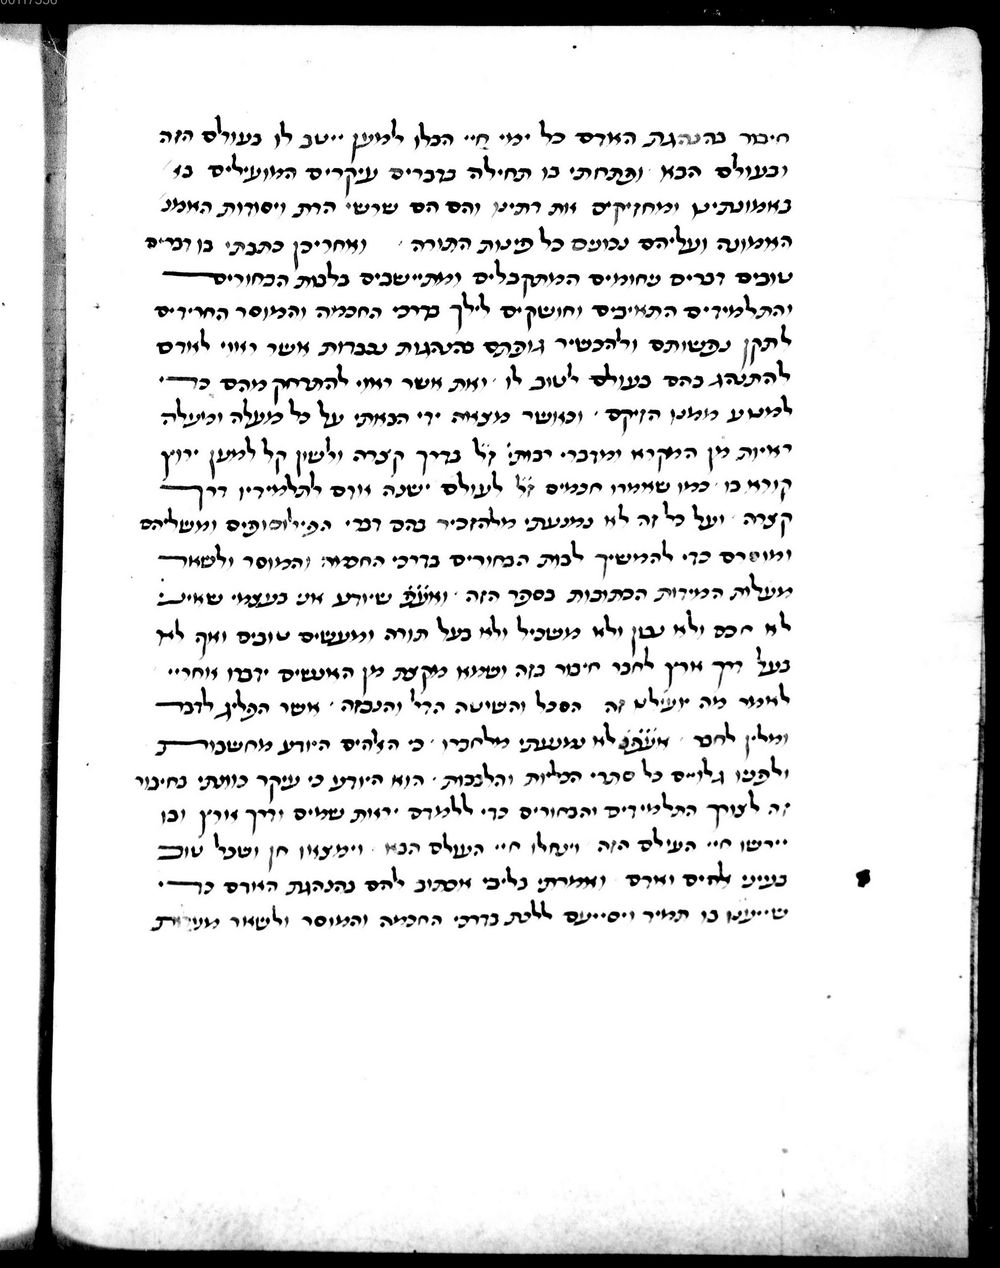 חיבור בהנהגת האדם כל ימי חיי הבלו למען ייטב לו בעולם הזה
ובעולם הבא ופתחתי בו תחילה בדברים עיקרים המועילים בא
באמונתינו ומחזיקים את דתינו והם הם שרשי הדת ויסודות האמנ
האמונה ועליהם נכונים כל פינות התורה ואחריכן כתבתי בו דברים
טובים דברים נחומים המתקבלים ומתיישבים בלבות הבחורים
והתלמידים התאיבים וחושקים לילך בדרכי החכמה והמוסר החרידים
לתקן נפשותם ולהכשיר גופתם בהנהגות נבברות אשר ראוי לאדם
להתנהג בהם בעולם לטוב לו ואת אשר ראוי להתרחק מהם כדי
למנוע ממנו הזיקם וכאשר מצאה ידי הבאתי על כל מעלה ומעלה
ראיות מן המקרא ומדברי רבותי' ז"ל בדרך קצרה ולשון קל למען ירוץ
קורא בו כמו שאמרו חכמים ז"ל לעולם ישנה אדם לתלמידיו דרך
קצרה ועל כל זה לא נמנעתי מלהזכיר בהם דברי הפילוסופים ומשליהם
ומוסרם כדי להמשיך לבות הבחורים בדרכי החכמה והמוסר ולשאר
מעלות המידות הכתובות בספר הזה ואעפ שיודע אני בעצמי שאיני
לא חכם ולא נבון ולא משכיל ולא בעל תורה ומעשים טובים ואף לא
בעל דרך ארץ לחבר חיבור כזה ושמא מקצת מן האנשים ידברו אחריי
לאמר מה יועילנו זה הסכל והשיטה הדל והנבזה אשר הפליג לדבר
ומלין לחבר אעפכ לא נמנעתי מלחברו כי האלהים היודע מחשבות
ולפניו גלוים כל סתרי הכליות והלבבות הוא היודע כי עיקר כוונתי בחיבור
זה לצורך התלמידים והבחורים כדי ללמדם יראת שמים ודרך ארץ ובו
יירשו חיי העולם הזה וינחלו חיי העולם הבא וימצאו חן ושכל טוב
בעיני אלהים ואדם ואמרתי בליבי אכתוב להם בהנהגת האדם כדי
שייעינו בו תמיד ויסייעם ללכת בדרכי החכמה והמוסר ולשאר מעלות